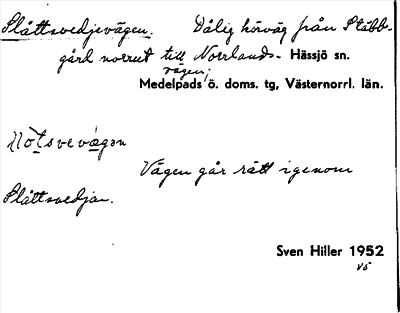 Slåttsvedjevägen. Dålig körväg från Stäbb-
gård norrut till Norrlands- Hässjö sn.
vägen;
Medelpads ö. doms. tg, Västernorrl. län.
Vägen går rätt igenom
Slåttsvedjan.
Sven Hiller 1952